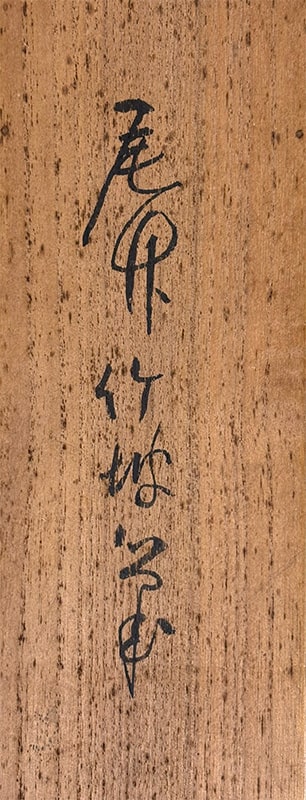 尾竹竹坡筆